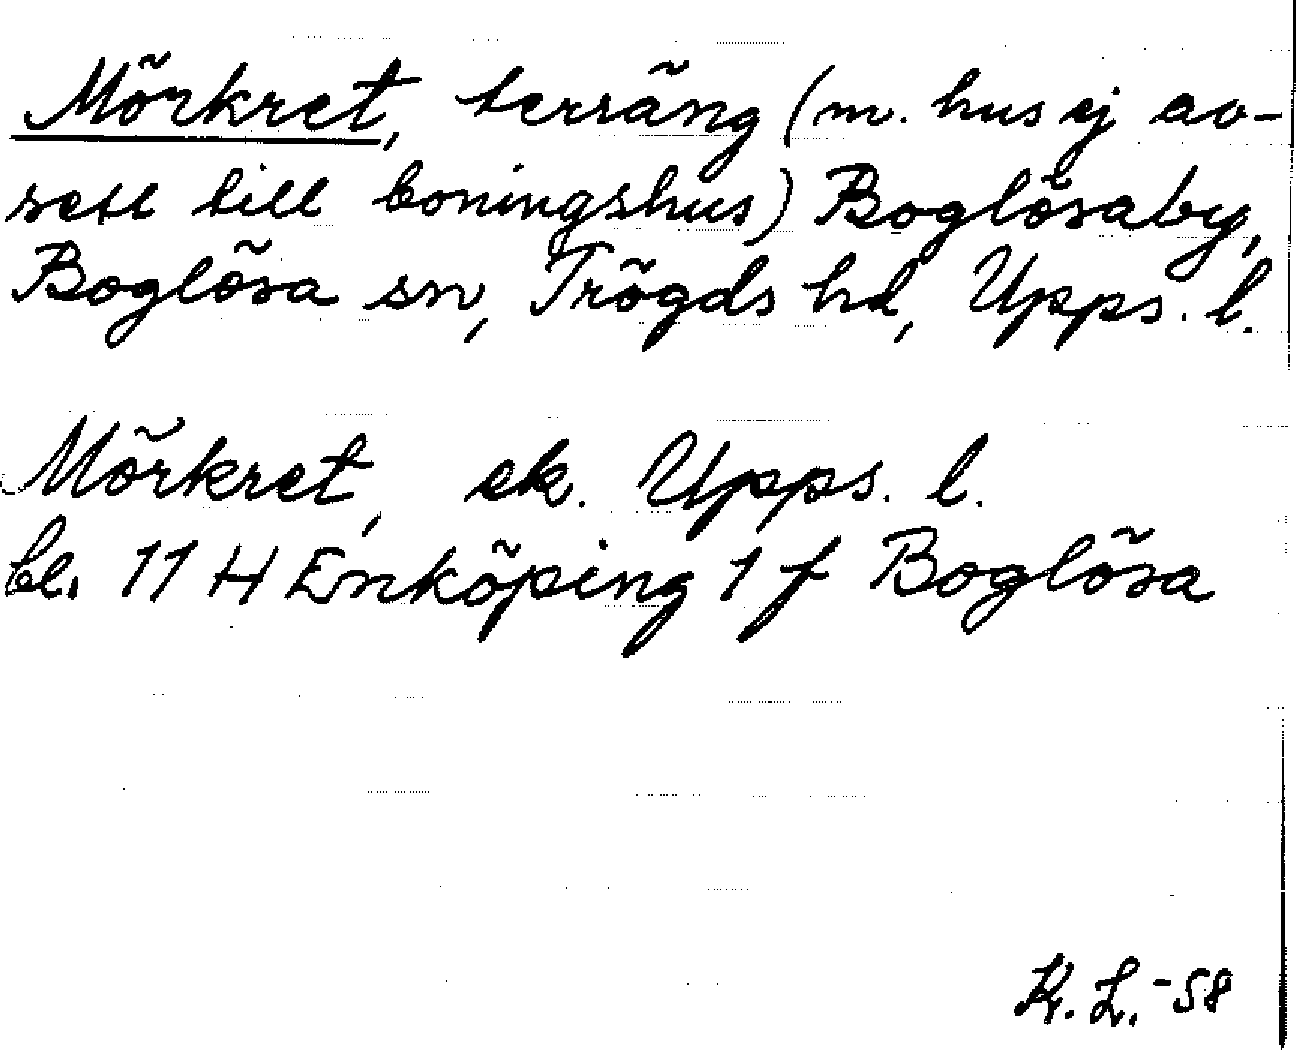 Mörkret, terräng (m. hus ej av-
sett till boningshus) Boglösaby,
Boglösa sn, Trögds hd, Upps. l.
Mörkret, ek. Upps. l.
bl. 11 H Enköping 1 f Boglösa
K. L. -58